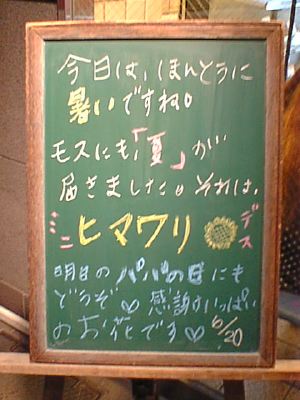 今日は、ほんとうに
暑いですね。
モスにも、「夏」が
届きました。それは、
ミニ ヒマワリ デス
明日のパパの日にも
どうぞ♡ 感謝いっぱい
のお花です♡ 6/20